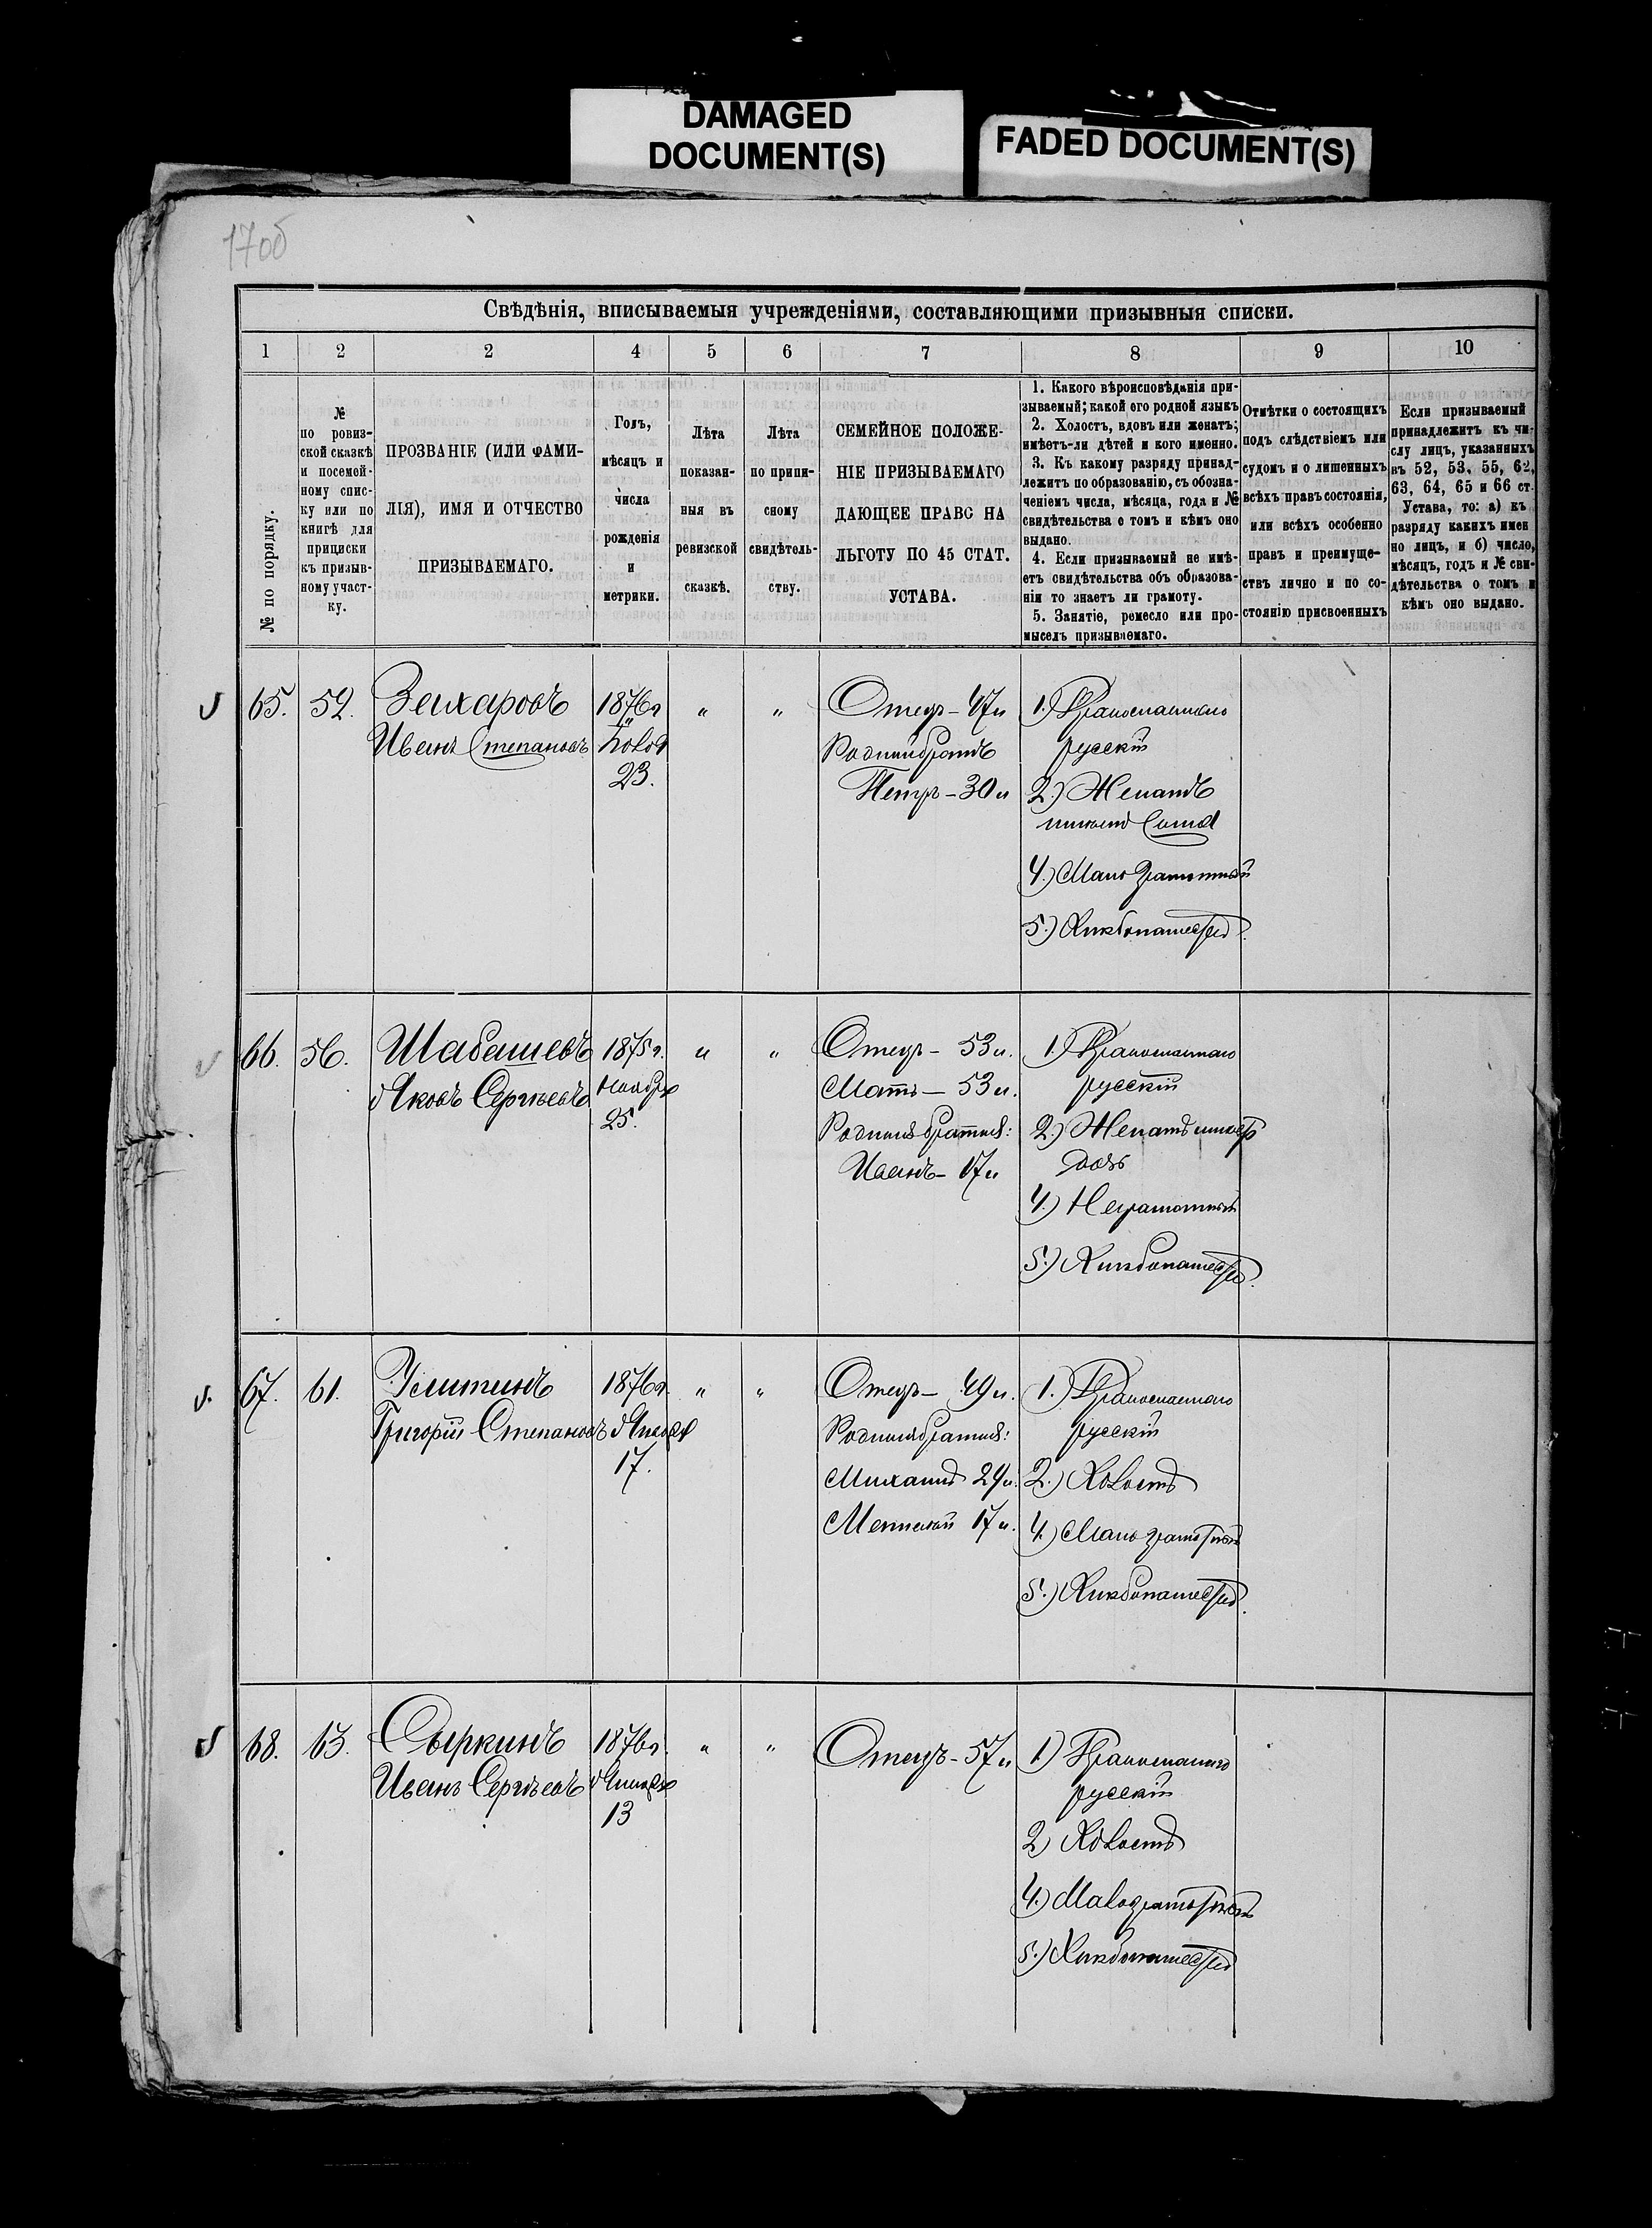 DAMAGED
DOCUMENT(S)
FADED DOCUMENT(S)
170б
Свѣдѣнія, вписываемыя учрежденіями, составляющими призывныя списки.
1 2 2 4 5 6 7 8 9 10
№ по порядку.
№
по ровиз-
ской сказкѣ
и посемей-
ному спис-
ку или по
книгѣ для
приписки
къ призыв-
ному участ-
ку.
ПРОЗВАНІЕ (ИЛИ ФАМИ-
ЛІЯ), ИМЯ И ОТЧЕСТВО
ПРИЗЫВАЕМАГО.
Годъ,
мѣсяцъ и
числа
рожденія
и
метрики.
Лѣта
показан-
ныя въ
ревизской
сказкѣ.
Лѣта
по припи-
сному
свидѣтель-
ству.
СЕМЕЙНОЕ ПОЛОЖЕ-
НІЕ ПРИЗЫВАЕМАГО
ДАЮЩЕЕ ПРАВО НА
ЛЬГОТУ ПО 45 СТАТ.
УСТАВА.
1. Какого вѣроисповѣданія при-
зываемый; какой его родной языкъ
2. Холостъ, вдовъ или женатъ;
имѣетъ-ли дѣтей и кого именно.
3. Къ какому разряду принад-
лежитъ по образованію, съ обозна-
ченіемъ числа, мѣсяца, года и №
свидѣтельства о томъ и кѣмъ оно
выдано.
4. Если призываемый не имѣ-
етъ свидѣтельства объ образова-
ніи то знаетъ ли грамоту.
5. Занятіе, ремесло или про-
мыселъ призываемаго.
Отмѣтки о состоящихъ
подъ слѣдствіемъ или
судомъ и о лишенныхъ
всѣхъ правъ состоянія,
или всѣхъ особенно
правъ и преимуще-
ствъ лично и по со-
стоянію присвоенныхъ
Если призываемый
принадлежитъ къ чи-
слу лицъ, указанныхъ
въ 52, 53, 55, 62,
63, 64, 65 и 66 ст.
Устава, то: а) къ
разряду какихъ имен
но лицъ, и б) число,
мѣсяцъ, годъ и № сви-
дѣтельства о томъ и
кѣмъ оно выдано.
65. 52. Захаровъ
Иванъ Степановъ
1876 г
23.
" "
Отецъ – 47 л
Родной братъ
Петръ – 30 л
1.) Православнаго
русскій
2.) Женатъ
4.) Мало грамотный
5.) Хлѣбопашество.
66. 56. Шабашевъ
Яковъ Сергѣевъ
1875 г.
Ноября
25.
" "
Отецъ – 53 л.
Мать – 53 л.
Родныя братья:
Иванъ – 17 л
1.) Православнаго
русскій
2.) Женатъ имѣетъ
дочь
4.) Неграмотный
5.) Хлѣбопашество.
67. 61. Улитинъ
Григорій Степановъ
1876 г.
Января
17.
" "
Отецъ – 49 л.
Родныя братья:
Михаилъ 29 л.
17 л.
1.) Православнаго
русскій
2.) Холостъ
4.) Мало грамотный
5.) Хлѣбопашество.
68. 63. Сыркинъ
Иванъ Сергѣевъ
1876 г.
Января
13
" "
Отецъ – 57 л
1) Православнаго
русскій
2) Холостъ
4.) Малограмотный
5.) Хлѣбопашество